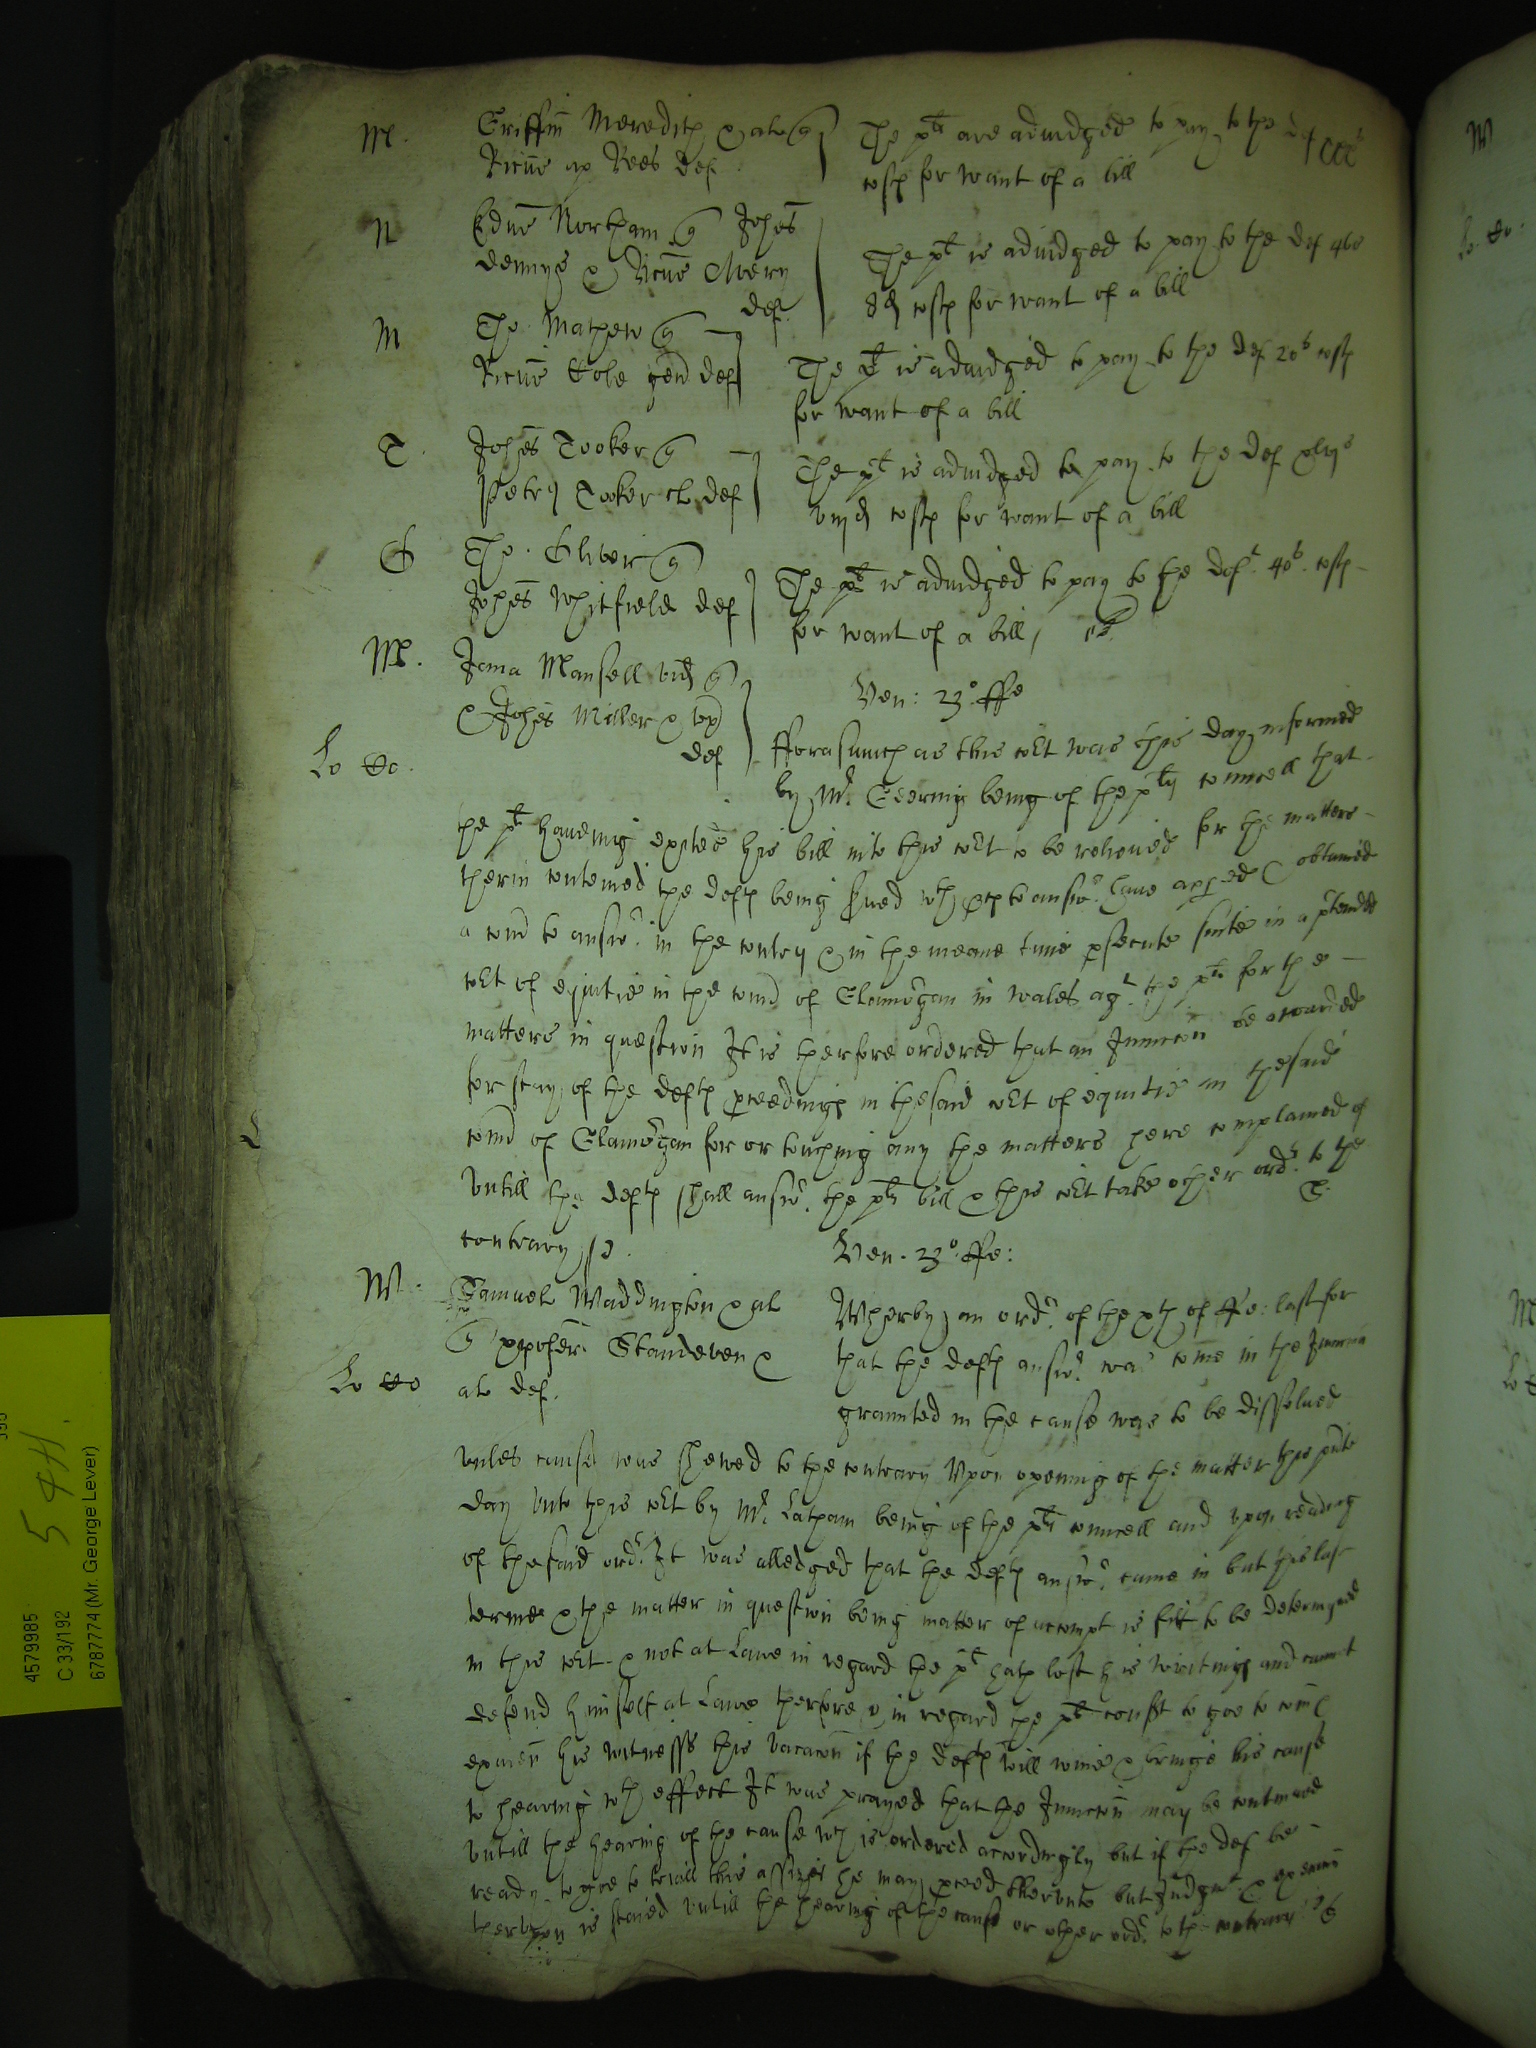 M. Griffin Meredith & al q
Ricus ap Rees def
The plts are adiudged to pay to the def
costs for want of a bill
N Edus Northam q Johes
dennys & Ricus Avery
def.
The plt is adiudged to pay to the def 46s
8d costs for want of a bill
M Tho. Mathew q
Ricus Cole gen def
The plt is adiudged to pay to the def 20s costs
for want of a bill
T. Johes Tooker q
Petrus Tooker cl def
The plt is adiudged to pay to the def xlvjs
viijd costs for want of a bill
Tho. Oliver q
Johes Whitfield def
The plt is adiudged to pay to the deft. 40s. costs
for want of a bill
M. Jana Mansell vid q
Johes Miller & ux
def
Ven: 23o. ffe
fforasmuch as this cort was this day informed
by Mr. Geering being of the plts councell that
the plt haveing exited his bill into this cort to be releived for the matters
therin conteined the defts being serued wth proces to answr. haue appered & obtained
a comd to answr. in the contry & in the meane time psecute suite in a ptended
cort of equitie in the com of Glamorgan in wales agt. the plt for the
matters in question It is therfore ordered that an Iniuncon be awarded
for stay of the defts pceedings in the said cort of equitie in the said
com of Glamorgan for or touching any the matters here complained of
vntill the defts shall answr. the plts bill & this cort take other ordr. to the
contrary
Ven. 23o. ffe:
W. Samuel Waddington & al
q xpofer. Standeven &
al def.
Wherby an ordr. of the xth of ffe: last for
that the defts answr. was come in the Iniuncon
graunted in the cause was to be dissolued
vnles cause was shewed to the contrary Vpon opening of the matter this pnte
day vnto this cort by Mr. Latham being of the plts councell and vpon reading
of the said ordr. It was alledged that the defts answr. came in but this last
terme & the matter in question being matter of accompt is fitt to be determyned
in this cort & not at Lawe in regard the plt hath lost his writings and cannot
defend himself at Lawe therfore & in regard the plt
examen his witnesses this vacacon if the defts will ioine & bringe his cause
to hearing wth effect It was prayed that the Iniuncon may be contynued
vntill the hearing of the cause wch is ordered accordingly but if the def be
ready to goe to triall this assizes he may pceed thervnto but Iudgmt & execucon
thervpon is staied vntill the hearing of the cause or other ordr. to the contrary
4579985
C 33/192
6787774 (Mr. George Lever)